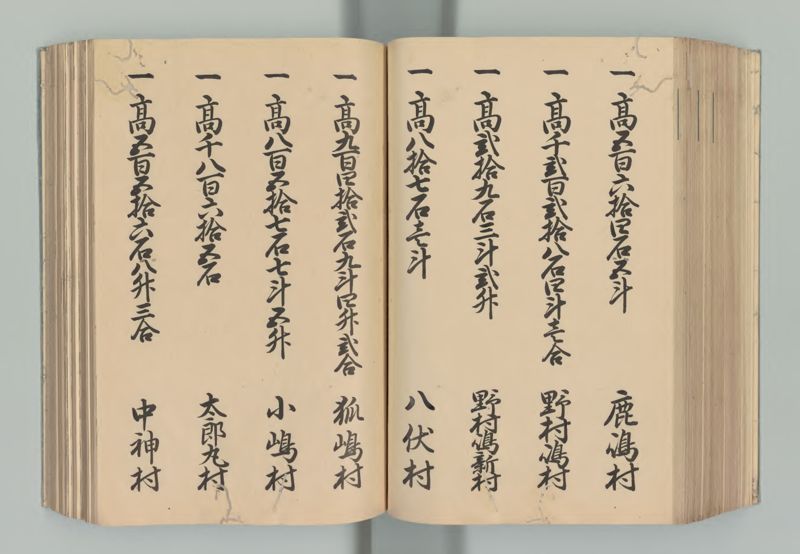 一 高五百六拾四石五斗 鹿嶋村
一 高千弐百弐拾八石四斗壱合 野村嶋村
一 高弐拾九石三斗弐升 野村嶋新村
一 高八拾七石壱斗 八伏村
一 高九百四拾弐石九斗四升弐合 狐嶋村
一 高八百五拾七石七斗五升 小嶋村
一 高千八百六拾五石 太郎丸村
一 高五百五拾六石八升三合 中神村